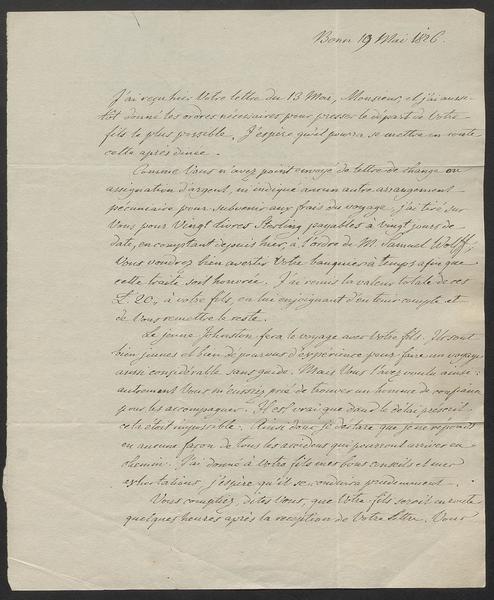 Bonn 19 Mai 1826.
J'ai reçu hier Votre lettre du 13 Mai, Monsieur, et j'ai aussi-
tôt donné les ordres nécessaires pour presser le départ de Votre
fils le plus possible. J'espère qu'il pourra se mettre en route
cette après dinée.
Comme Vous n'avez point envoyé de lettre de change ou
assignation d'argent, ni indiqué aucun autre arrangement
pécuniaire pour subvenir aux frais du voyage, j'ai tiré sur
Vous pour Vingt livres Sterling payables à vingt jours de
date, en comptant depuis hier, à l'ordre de M. Samuel Wolff.
Vous voudrez bien avertir Votre banquier à temps afin que
cette traite soit honorée. J'ai remis la valeur totale de ces
L. 20, à votre fils, en lui enjoignant d'en tenir compte et
de Vous remettre le reste.
Le jeune Johnston fera le voyage avec Votre fils. Ils sont
bien jeunes et bien dépourvus d'expérience pour faire un voyage
aussi considérable sans guide. Mais Vous l'avez voulu ainsi:
autrement Vous m'eussiez prié de trouver un homme de confiance
pour les accompagner. Il est vrai que dans le délai prescrit
cela étoit impossible. Ainsi donc je déclare que je ne réponds
en aucune façon de tous les accidens qui pourront arriver en
chemin. J'ai donné à Votre fils mes bons conseils et mes
exhortations, j'espère qu'il se conduira prudemment.
Vous comptiez, dites Vous, que Votre fils seroit en route
quelques heures après la reception de Votre lettre. Vous